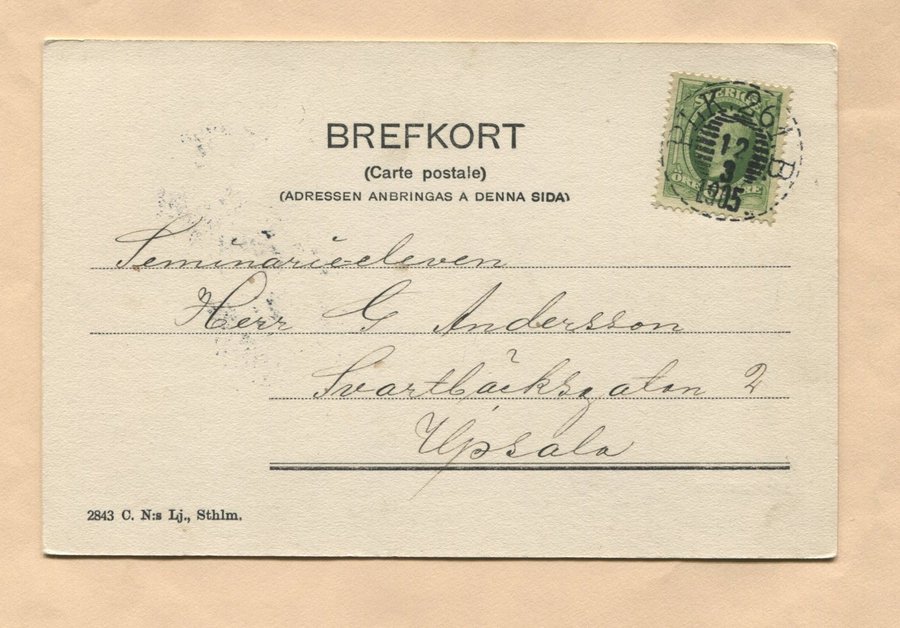 BREFKORT
(Carte postale)
(ADRESSEN ANBRINGAS A DENNA SIDA)
SVERIGE
PKK. 26
B
12
3
1905
Seminarieeleven
Herr G Andersson
Svartbäcksgatan 2
Upsala
2843 C. N:s Lj., Sthlm.